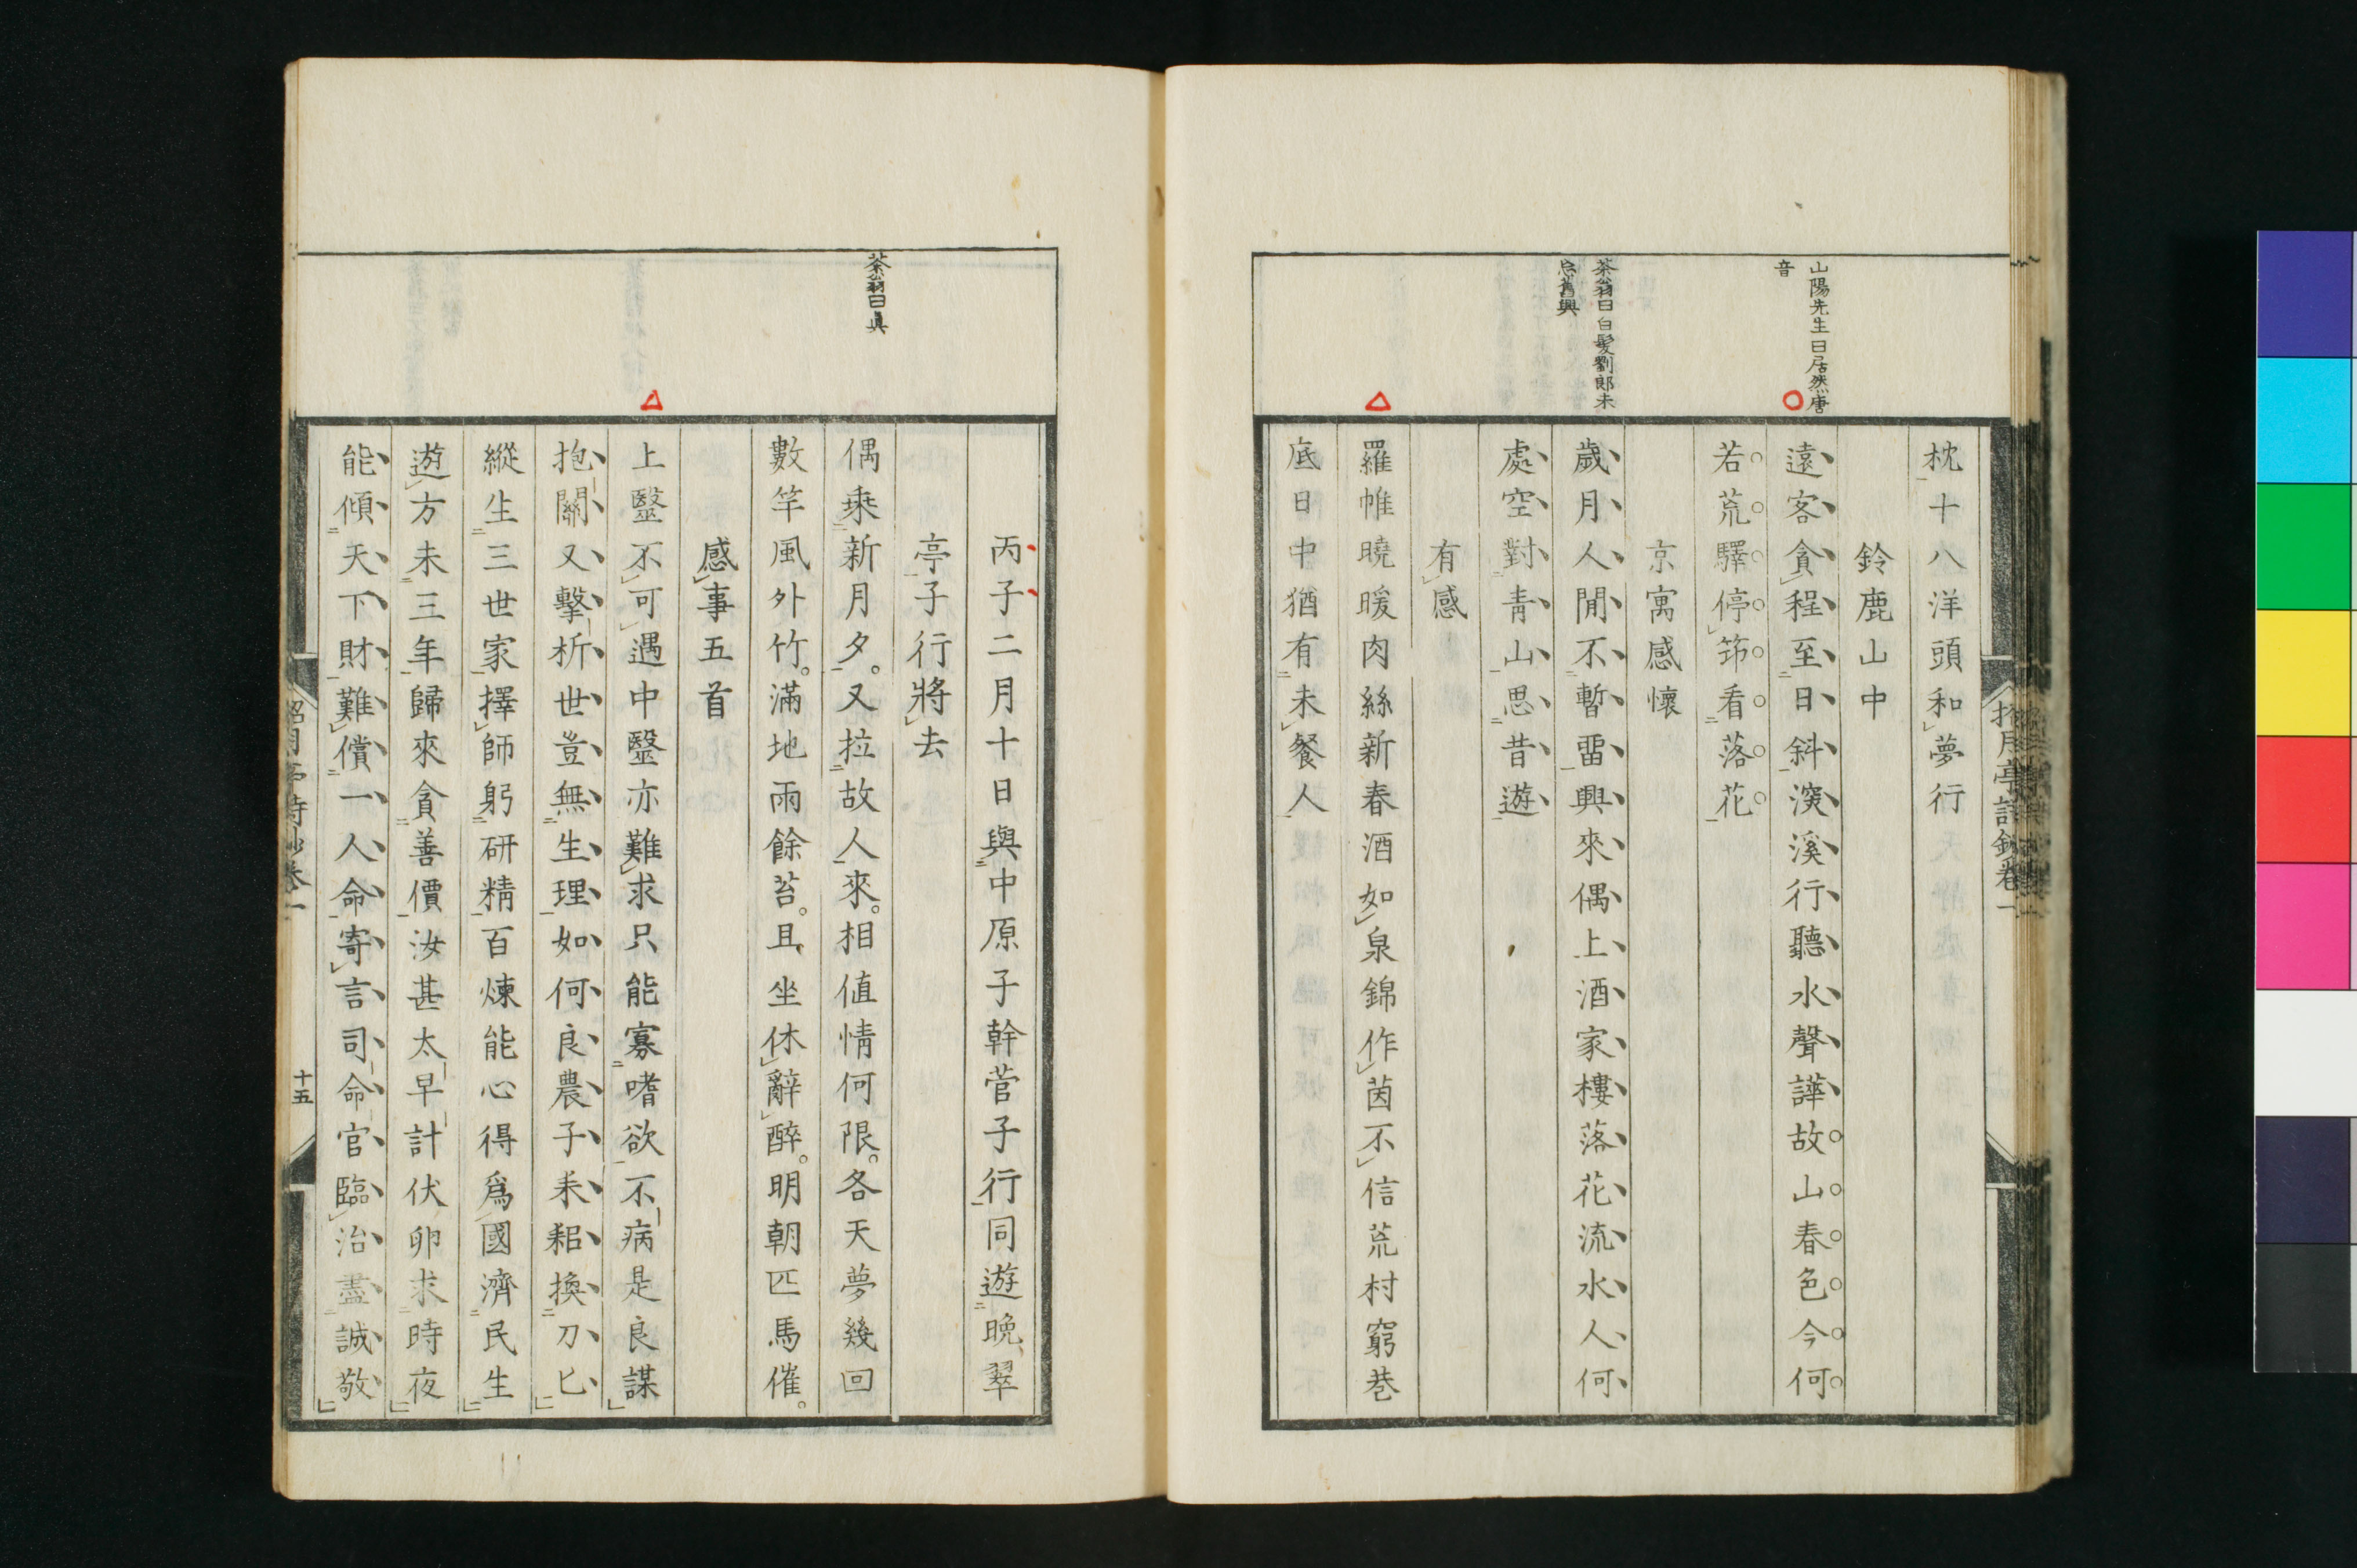 山陽先生曰居然唐
音
茶翁曰白髮劉郎未
忘舊興
枕十八洋頭和夢行
鈴鹿山中
遠客貪程至日斜深溪行聽水聲譁故山春色今何
若荒驛停筇看落花
京寓感懷
歲月人間不暫畱興來偶上酒家樓落花流水人何
處空對青山思昔遊
有感
羅帷曉暖肉絲新春酒如泉錦作茵不信荒村窮巷
底日中猶有未餐人
茶翁曰真
丙子二月十日與中原子幹菅子行同遊晚翠
亭子行將去
偶乘新月夕又拉故人來相值情何限各天夢幾回
數竿風外竹滿地雨餘苔且坐休辭醉明朝匹馬催
感事五首
上毉不可遇中毉亦難求只能寡嗜欲不病是良謀
抱關又擊柝世豈無生理如何良農子耒耜換刀匕
縱生三世家擇師躬研精百煉能心得爲國濟民生
遊方未三年歸來貪善價汝甚太早計伏卵求時夜
能傾天下財難償一人命寄言司命官臨治盡誠敬
十五